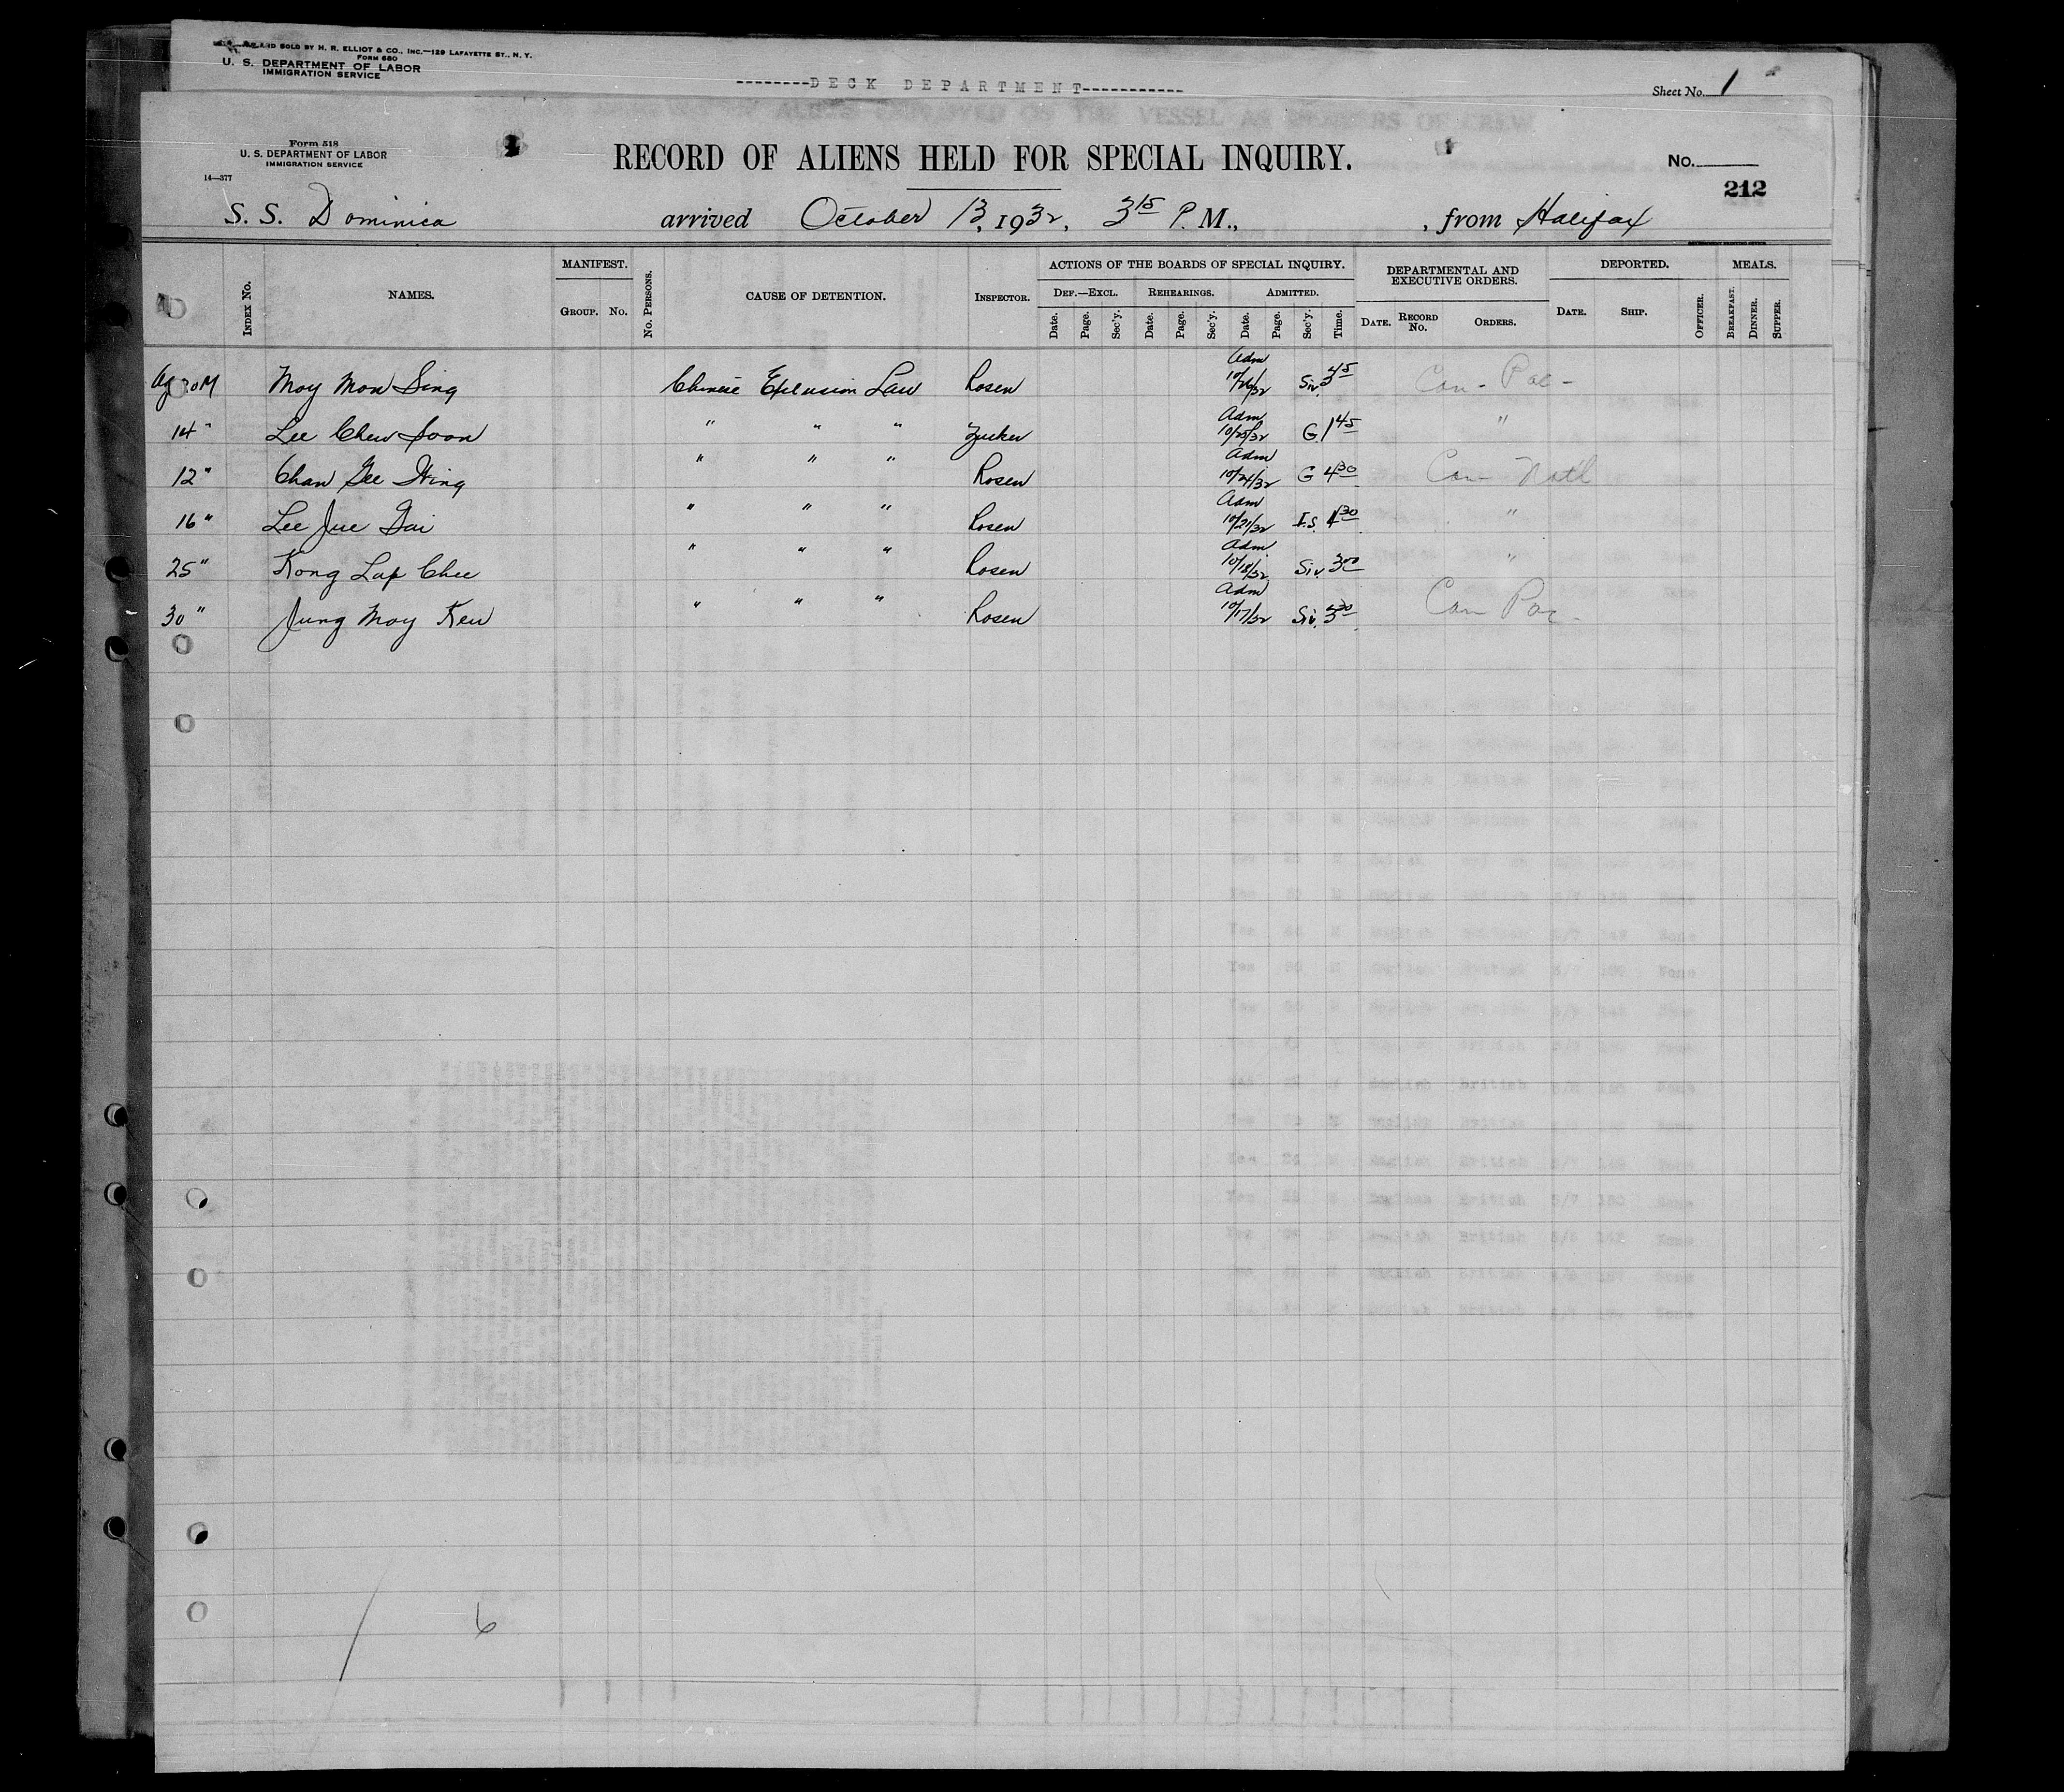 AND SOLD BY H. R. ELLIOT & CO., INC.—129 LAFAYETTE ST., N. Y.
FORM 680
U. S. DEPARTMENT OF LABOR
IMMIGRATION SERVICE
--------DECK DEPARTMENT-----------
Sheet No. 1
Form 518
U. S. DEPARTMENT OF LABOR
IMMIGRATION SERVICE
14—377
RECORD OF ALIENS HELD FOR SPECIAL INQUIRY.
No.
212
S. S. Dominica arrived October 13, 1932, 3 15 P. M., , from Halifax
INDEX No. NAMES. MANIFEST. GROUP. No. No. PERSONS. CAUSE OF DETENTION. INSPECTOR. ACTIONS OF THE BOARDS OF SPECIAL INQUIRY. DEPARTMENTAL AND EXECUTIVE ORDERS. DEPORTED. MEALS.
DEF.—EXCL. REHEARINGS. ADMITTED.
Date. Page. Sec'y. Date. Page. Sec'y. Date. Page. Sec'y. Time. DATE. RECORD No. ORDERS. DATE. SHIP. OFFICER. BREAKFAST. DINNER. SUPPER.
30 M Moy Mon Sing Chinese Exclusion Law Rosen Adm 10/26/32 Siv. 3 45 Can - Pac -
14 " Lee Chew Soon " " " Zucker Adm 10/25/32 G. 1 45 "
12 " Chan Gee Hing " " " Rosen Adm 10/24/32 G 4 30 Can - Nat'l
16 " Lee Jue Dai " " " Rosen Adm 10/21/32 I.S. 4 30 "
25 " Kong Lap Chee " " " Rosen Adm 10/18/32 Siv. 3 00 "
30 " Jung Moy Ken " " " Rosen Adm 10/17/32 Siv. 3 30 Can Pac -
6